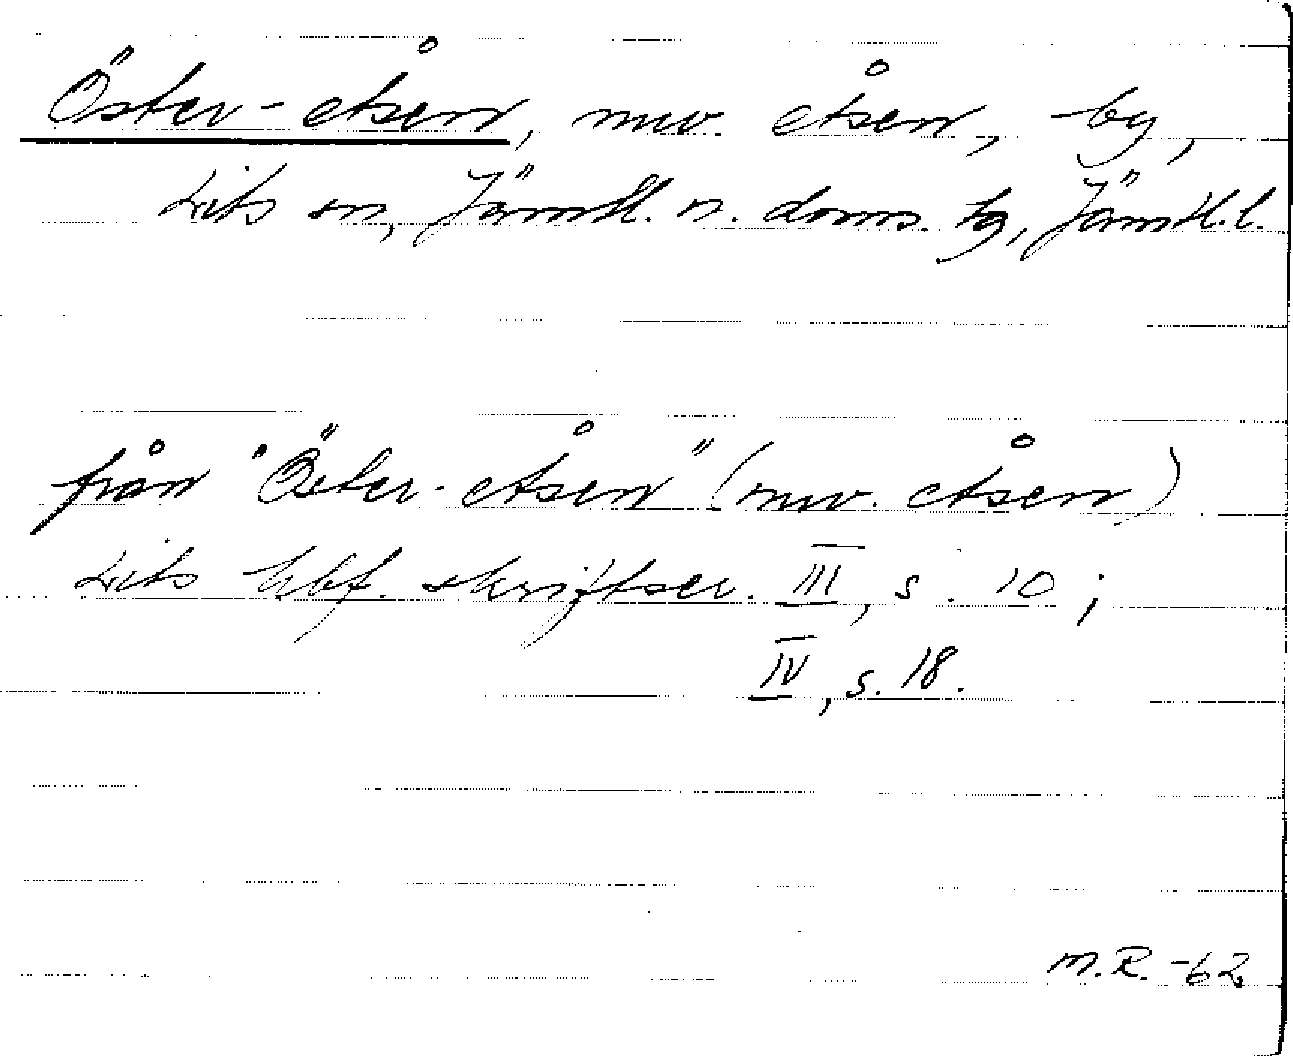 Öster-åsen, nuv. åsen, by,
Lits sn, Jämtl. n. doms. tg, Jämtl. l.
från "Öster-åsen" (nuv. åsen)
Lits hbf. skriftser. III, s. 10;
IV, s. 18.
M.R. -62